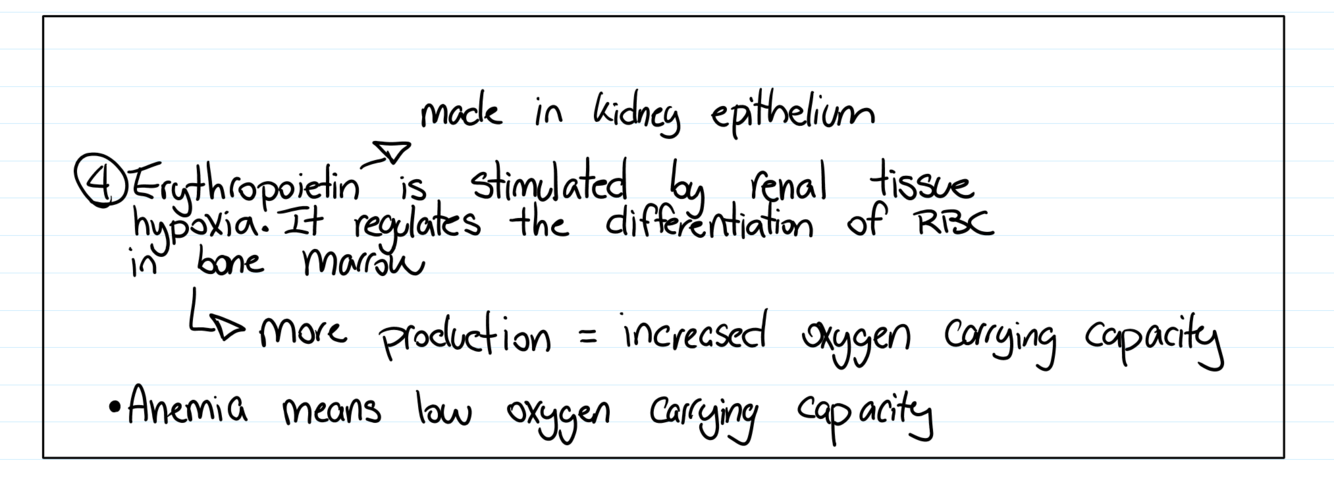 made in kidney epithelium
④ Erythropoietin is stimulated by renal tissue
hypoxia. It regulates the differentiation of RBC
in bone marrow
more production = increased oxygen carrying capacity
• Anemia means low oxygen carrying capacity